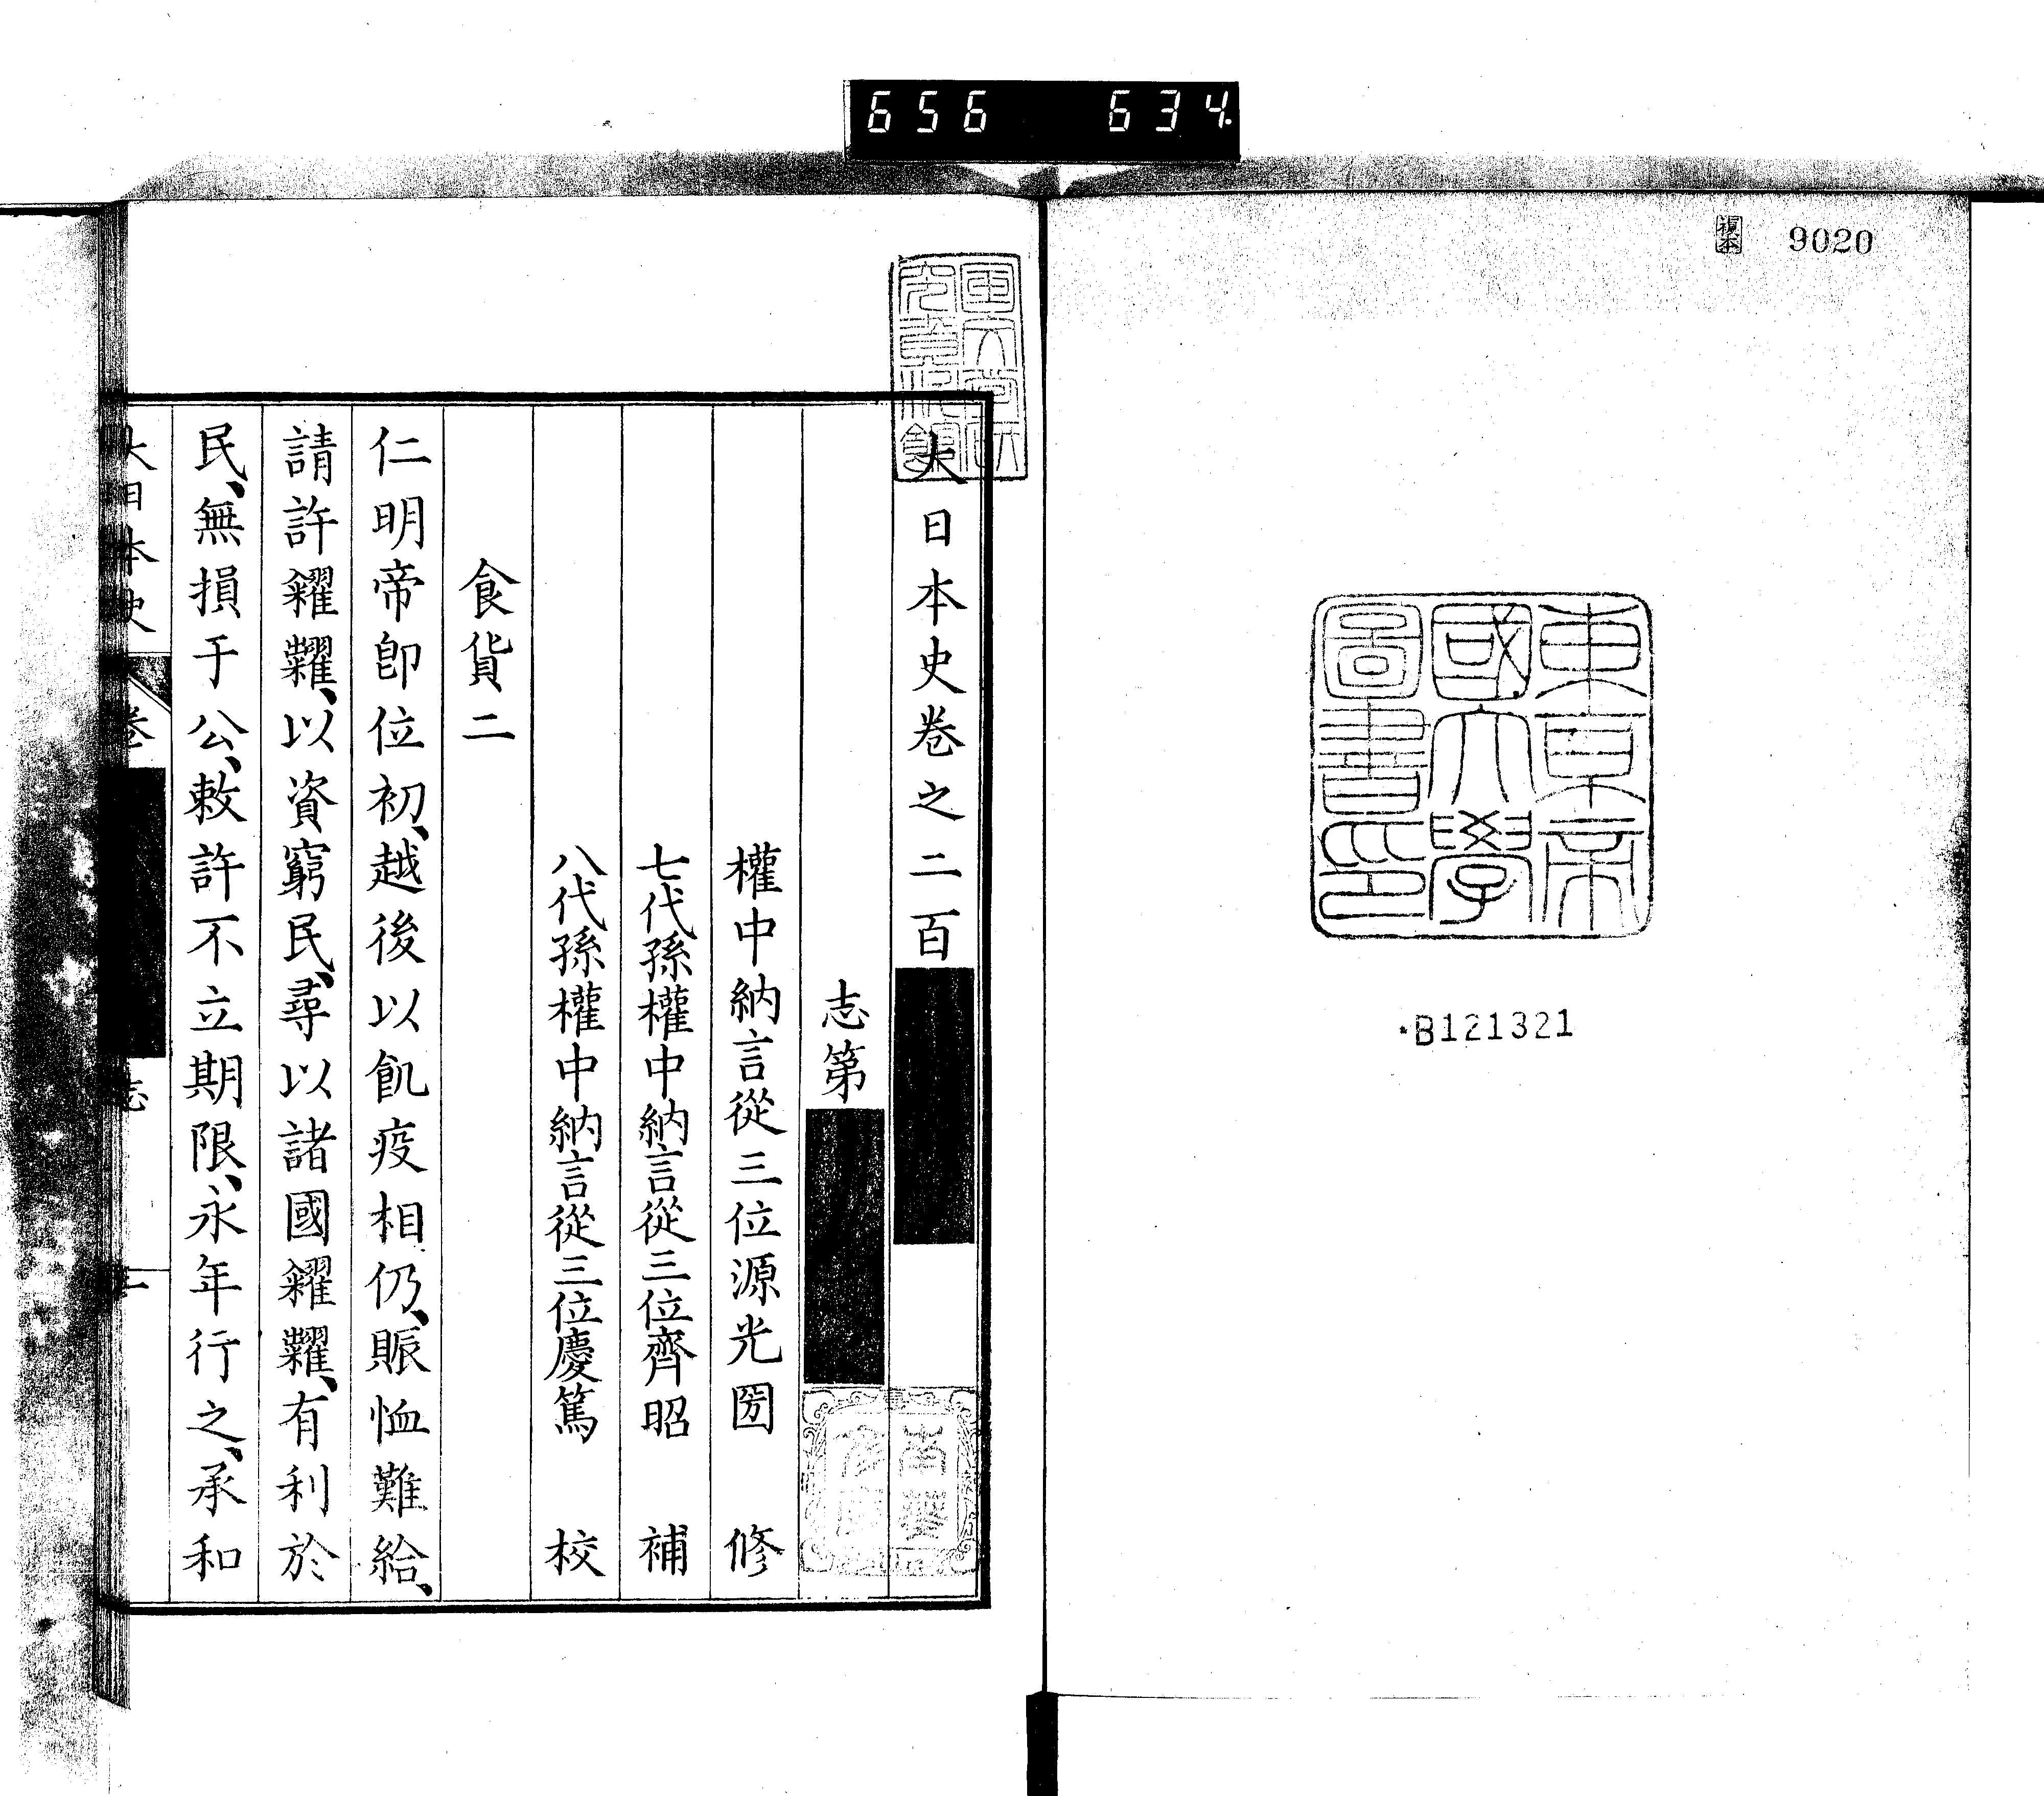 656 634
複本
9020
東京帝
國大學
圖書印
*B121321
大日本史卷之二百
志第
權中納言從三位源光圀 修
七代孫權中納言從三位齊昭 補
八代孫權中納言從三位慶篤 校
食貨二
仁明帝卽位初、越後以飢疫相仍、賑恤難給、
請許糴糶、以資窮民、尋以諸國糴糶、有利於
民、無損于公、敕許不立期限、永年行之、承和
大日本史 卷 志